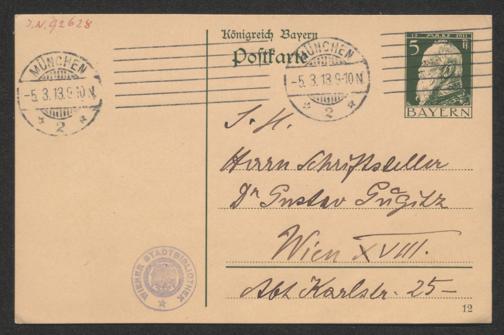 J.N. 92628
Königreich Bayern
Postkarte
12 MÄRZ 1911
5
BAYERN
MÜNCHEN
-5.3.13.9-10 N.
2
MÜNCHEN
-5.3.13.9-10 N.
2
S. H.
Herrn Schriftsteller
Dr Gustav Gugitz
Wien XVIII.
Abt Karlstr. 25-
WIENER STADTBIBLIOTHEK
12